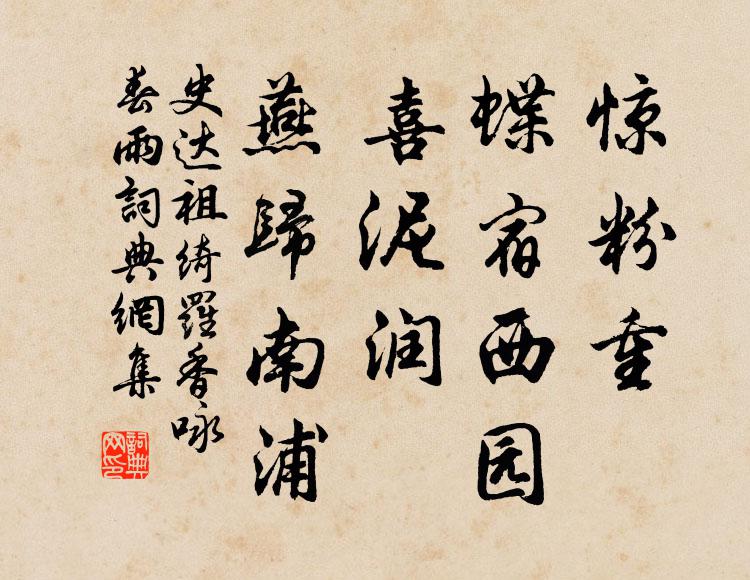 惊粉重
蝶宿西园
喜泥润
燕歸南浦
史达祖绮羅香咏
春雨詞典網集
詞典网印